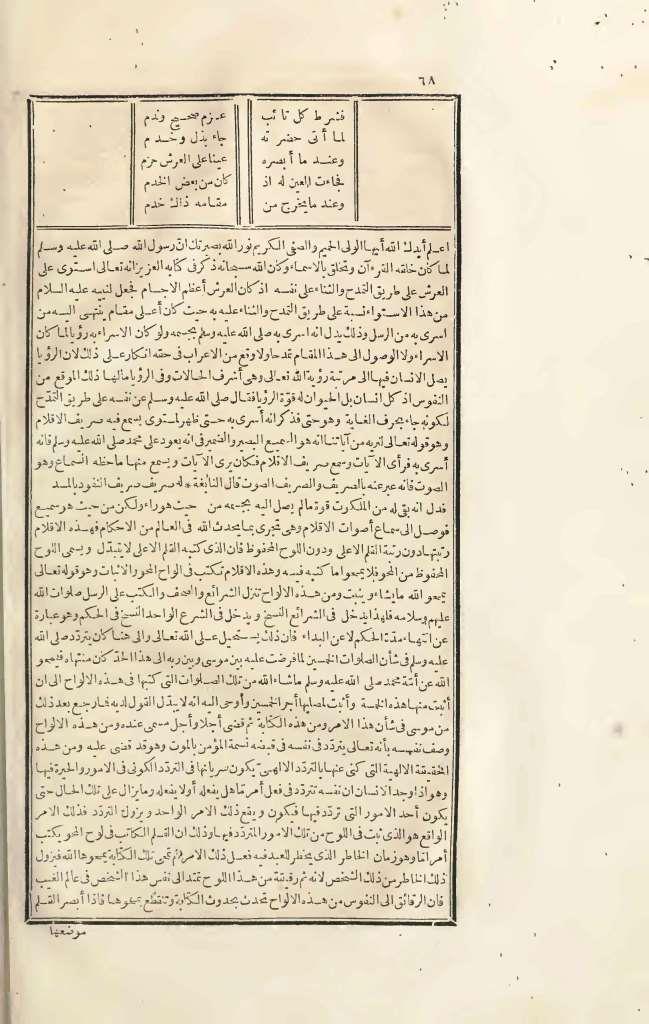 ٦٨
فشرط كل تائب عزم صحيح وندم
لما أتى حضرته جاء بذل وخدم
وعند ما أبصره عينا على العرش حزم
فجاءت العين له اذ كان من بعض الخدم
وعند ما يخرج من مقامه ذاك خدم
اعلم أيدك الله أيها الولى الحميم والصفى الكريم نور الله بصيرتك ان رسول الله صلى الله عليه وسلم
لما كان خلقه القرءآن وتخلق بالاسماء وكان الله سبحانه ذكر فى كتابه العزيز انه تعالى استوى على
العرش على طريق التمدح والثناء على نفسه اذ كان العرش أعظم الاجسام فجعل لنبيه عليه السلام
من هذا الاستواء نسبة على طريق التمدح والثناء عليه به حيث كان أعلى مقام ينتهى اليه من
أسرى به من الرسل وذلك يدل انه أسرى به صلى الله عليه وسلم بجسمه ولو كان الاسراء به رؤيا لما كان
الاسراء ولا الوصول الى هذا المقام تمدحا ولا وقع من الاعراب فى حقه انكار على ذلك لان الرؤيا
يصل الانسان فيها الى مرتبة رؤية الله تعالى وهى أشرف الحالات وفى الرؤيا مالها ذلك الموقع من
النفوس اذ كل انسان بل الحيوان له قوة الرؤيا فقال صلى الله عليه وسلم عن نفسه على طريق التمدح
لكونه جاء بحرف الغاية وهو حتى فذكر انه أسرى به حتى ظهر لمستوى يسمع فيه صريف الاقلام
وهو قوله تعالى لنريه من آياتنا انه هو السميع البصير والضمير فى انه يعود على محمد صلى الله عليه وسلم فانه
أسرى به فرأى الآيات وسمع صريف الاقلام فكان يرى الآيات ويسمع منها ما حظه السماع وهو
الصوت فانه عبر عنه بالصريف والصريف الصوت قال النابغة * له صريف صريف القعو بالمسد
فدل انه بقى له من الملكوت قوة ما لم يصل اليه بجسمه من حيث هو راء ولكن من حيث هو سميع
فوصل الى سماع أصوات الاقلام وهى تجرى بما يحدث الله فى العالم من الاحكام فهذه الاقلام
رتبتها دون رتبة القلم الاعلى ودون اللوح المحفوظ فان الذى كتبه القلم الاعلى لا يتبدل وسمى اللوح
المحفوظ من المحو فلا يمحو ما كتبه فيه وهذه الاقلام تكتب فى الواح المحو والاثبات وهو قوله تعالى
يمحو الله ما يشاء ويثبت ومن هذه الالواح تتنزل الشرائع والصحف والكتب على الرسل صلوات الله
عليهم وسلامه فلهذا يدخل فى الشرائع النسخ ويدخل فى الشرع الواحد النسخ فى الحكم وهو عبارة
عن انتهاء مدة الحكم لا عن البداء فان ذلك يستحيل على الله تعالى والى هنا كان يتردد صلى الله
عليه وسلم فى شأن الصلوات الخمسين لما فرضت عليه بين موسى وبين ربه الى هذا الحد كان منتهاه فيمحو
الله عن أمة محمد صلى الله عليه وسلم ما شاء الله من تلك الصلوات التى كتبها فى هذه الالواح الى ان
أثبت منها هذه الخمسة وأثبت لمصليها أجر الخمسين وأوحى اليه انه لا يبدل القول لديه فما رجع بعد ذلك
من موسى فى شأن هذا الامر ومن هذه الكتابة ثم قضى أجلا وأجل مسمى عنده ومن هذه الالواح
وصف نفسه بأنه تعالى يتردد فى نفسه فى قبضه نسمة المؤمن بالموت وهو قد قضى عليه ومن هذه
الحقيقة الالهية التى كنى عنها بالتردد الالهى يكون سريانها فى التردد الكونى فى الامور والحيرة فيها
وهو اذا وجد الانسان ان نفسه تتردد فى فعل أمر ما هل يفعله أولا يفعله وما يزال على تلك الحال حتى
يكون أحد الامور التى تردد فيها فيكون ويقع ذلك الامر الواحد ويزول التردد فذلك الامر
الواقع هو الذى ثبت فى اللوح من تلك الامور المتردد فيها وذلك ان القلم الكاتب فى لوح المحو يكتب
أمر اما وهو زمان الخاطر الذى يخطر للعبد فيه فعل ذلك الامر ثم تمحى تلك الكتابة يمحوها الله فيزول
ذلك الخاطر من ذلك الشخص لانه ثم رقيقة من هذا اللوح تمتد الى نفس هذا الشخص فى عالم الغيب
فان الرقائق الى النفوس من هذه الالواح تحدث بحدوث الكتابة وتنقطع بمحوها فاذا أبصر القلم
موضعها